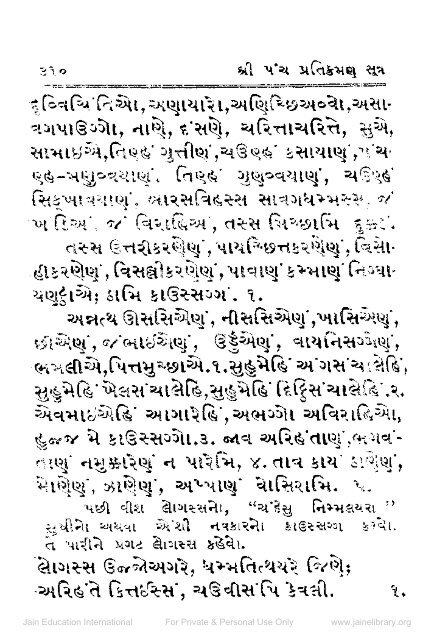 ૩૧૦ શ્રી પંચ પ્રતિક્રમણ સૂત્ર
દુવ્વિચિંતિઓ, અણાયારો, અણિચ્છિઅવ્વો, અસા-
વગપાઉગ્ગો, નાણે, દંસણે, ચરિત્તાચરિત્તે, સુએ,
સામાઇએ, તિણ્હં ગુત્તીણં, ચઉણ્હં કસાયાણં, પંચ-
ણ્હ-મણુવ્વયાણં, તિણ્હં ગુણવ્વયાણં, ચઉણ્હં
સિક્ખાવયાણં, બારસવિહસ્સ સાવગધમ્મસ્સ, જં
ખંડિઅં, જં વિરાહિઅં, તસ્સ મિચ્છામિ દુક્કડં.
તસ્સ ઉત્તરીકરણેણં, પાયચ્છિત્તકરણેણં, વિસો-
હીકરણેણં, વિસલ્લીકરણેણં, પાવાણં કમ્માણં નિગ્ઘા-
યણટ્ઠાએ; ઠામિ કાઉસ્સગ્ગં. ૧.
અન્નત્થ ઊસસિએણં, નીસસિએણં, ખાસિએણં,
છીએણં, જંભાઈએણં, ઉડ્ડુએણં, વાયનિસગ્ગેણં,
ભમલીએ, પિત્તમુચ્છાએ. ૧. સુહુમેહિં અંગસંચાલેહિં,
સુહુમેહિં ખેલસંચાલેહિં, સુહુમેહિં દિટ્ઠિસંચાલેહિં. ૨.
એવમાઇએહિં આગારેહિં, અભગ્ગો અવિરાહિઓ,
હુજ્જ મે કાઉસ્સગ્ગો. ૩. જાવ અરિહંતાણં, ભગવં-
તાણં નમુક્કારેણં ન પારેમિ, ૪. તાવ કાયં ઠાણેણં,
મોણેણં, ઝાણેણં, અપ્પાણં વોસિરામિ. ૫.
પછી વીશ લોગસ્સનો, "ચંદેસુ નિમ્મલયરા"
સુધીનો અથવા એંશી નવકારનો કાઉસ્સગ્ગ કરવો.
તે પારીને પ્રગટ લોગસ્સ કહેવો.
લોગસ્સ ઉજ્જોઅગરે, ધમ્મતિત્થયરે જિણે;
અરિહંતે કિત્તઈસ્સં, ચઉવીસંપિ કેવલી. ૧.
Jain Education International For Private & Personal Use Only www.jainelibrary.org